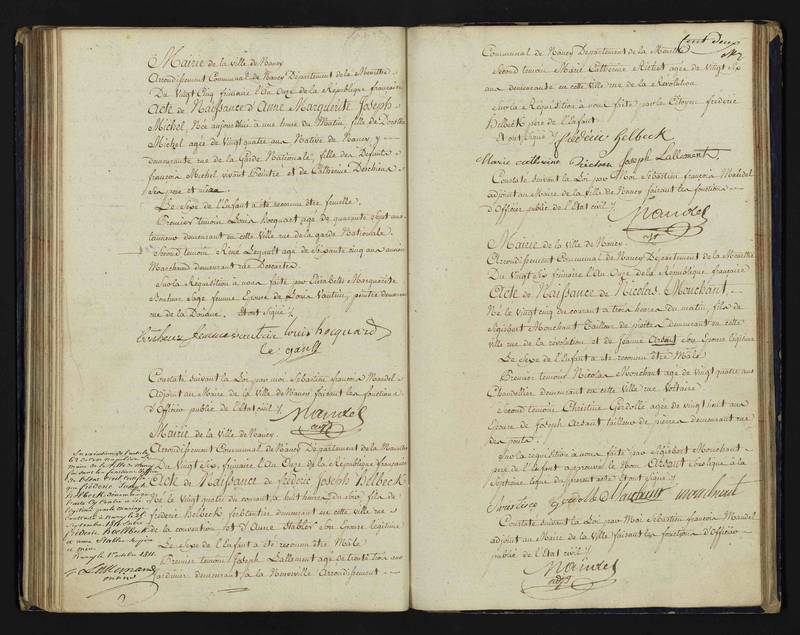 Mairie de la ville de Nancy
Arrondissement Communal de Nancy Département de la Meurthe
Du Vingt Cinq frimaire l'An Onze de la République française
Acte de Naissance d'Anne Marguerite Joseph
Michel, Née aujourd'hui à une heure du Matin, fille de
Michel agée de vingt quatre ans Native de Nancy y
demeurante rue de la Garde Nationale, fille des Défunts
françois Michel vivant Peintre et de Catherine
Ses pere et mere
Le Sexe de l'Enfant a été reconnu être femelle.
Premier temoin Louis hocquart agé de quarante Sept ans
demeurant en cette Ville rue de la garde Nationale.
Second temoin René Legault agé de Soixante cinq ans ancien
Marchand demeurant rue Descartes
Sur la Réquisition à nous faite par Elisabethe Marguerite
Bonheur Sage femme Epouse de Louis Vautrin, peintre demeurant
rue de la Douane. Et ont Signé
bonheur femme vautrin louis hocquard
Le gault
Constaté suivant la Loi par moi Sébastien françois Mandel
Adjoint au Maire de la Ville de Nancy faisant les fonctions
d'Officier public de l'Etat civil
Mandel
adjt
Mairie de la Ville de Nancy.
Arrondissement Communal de Nancy Département de la Meurthe
Du Vingt Six, frimaire l'An Onze de la République française
Acte de Naissance de frédéric Joseph Helbeck
Né le vingt quatre du courant à huit heures Du Soir, fils de
frédéric Helbeck ferblantier demeurant en cette ville rue
de la convention et d'Anne Stabler Son Epouse légitime
Le Sexe de l'Enfant a été reconnu être Mâle
Premier temoin Joseph Lallement agé de trente trois ans
Jardinier demeurant à la Neuveville Arrondissement
que frédéric Joseph
Helbeck
légitimé par le mariage
contracté à Nancy le
frédéric
et anne Stabler
Nancy le 1er octobre 1811
Lallemand
Cent deux
Communal de Nancy Département de la Meurthe
Second temoin Marie Catherine Richet agée de vingt Six
ans demeurante en cette Ville rue de la Révolution
Sur la Réquisition à nous faite par le Citoyen frédéric
Helbeck pere de l'Enfant
Et ont Signé frédéric Helbeck
Marie catherine Joseph Lallement
Constaté suivant la Loi par Moi Sébastien françois Mandel
adjoint au Maire de la Ville de Nancy faisant les fonctions
d'Officier public de l'Etat civil
Mandel
adjt
Mairie de la Ville de Nancy.
Arrondissement Communal de Nancy Département de la Meurthe
Du Vingt Six frimaire l'An Onze de la République française
Acte de Naissance de Nicolas Mouchant
Né le vingt cinq du courant à trois heures du matin, fils de
Sigisbert Mouchant Tailleur de pierres demeurant en cette
ville rue de la révolution et de Jeanne Arsant Son Epouse légitime
Le Sexe de l'Enfant a été reconnu être Mâle
Premier temoin Nicolas Mouchant agé de vingt quatre ans
Chandellier demeurant en cette Ville rue Voltaire
Second temoin Christine Gerdolle agée de vingt huit ans
Epouse de Joseph Arsant tailleur de pierres demeurant rue
des ponts.
Sur la réquisition à nous faite par Sigisbert Mouchant
pere de l'Enfant approuvé le Nom Arsant Surligné à la
Septieme ligne du présent acte Et ont Signé
Constaté suivant la Loi par Moi Sébastien françois Mandel
adjoint au Maire de la Ville faisant les fonctions d'Officier
public de l'Etat civil
Mandel
adjt